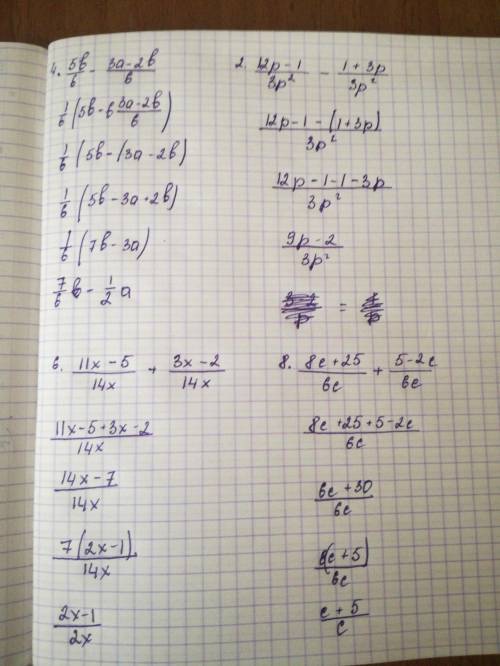 4. 5b/6 - 3a-2b/6
1/6 (5b-6 3a-2b/6)
1/6 (5b-(3a-2b)
1/6 (5b-3a+2b)
1/6 (7b-3a)
7/6 b - 1/2 a
2. 12p-1/3p² - 1+3p/3p²
12p-1-(1+3p)/3p²
12p-1-1-3p/3p²
9p-2/3p²
6. 11x-5/14x + 3x-2/14x
11x-5+3x-2/14x
14x-7/14x
7(2x-1)/14x
2x-1/2x
8. 8c+25/6c + 5-2c/6c
8c+25+5-2c/6c
6c+30/6c
6(c+5)/6c
c+5/c